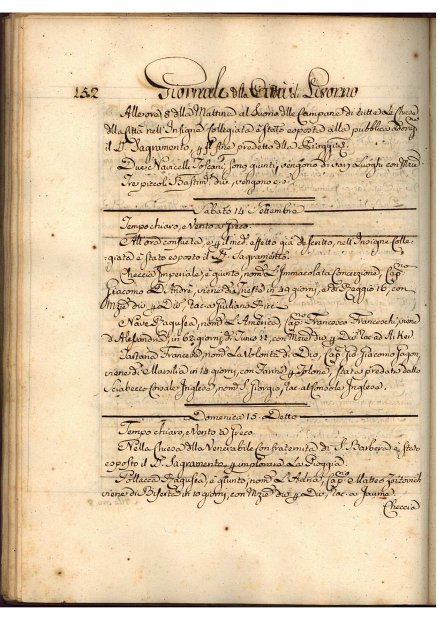 152 Giornale della Città di Livorno
All'ora 8 della Mattina al Suono delle Campane di tutte le Chiese
della Città nell'Insigne Collegiata è stato esposto alla pubblica
il Sagramento, predetto della Pioggia.
Due Navicelli Toscani sono giunti, vengono di varj Luoghi con
Tre piccoli Bastim. vengono
Sabato 14 Settembre
Tempo chiaro, Vento a Greco.
All'ora consueta, e p il med. effetto già descritto, nell'Insigne Colle-
giata è stato esposto il SS. Sagramento.
Checcia Imperiale, è giunto, nom. L'Immacolata Concezione, Cap.no
Giacomo D'Andrè, viene da Trieste in 29 giorni, e di Reggio 16, con
Mzie div. p Div. rac. a Giuliano Ricci
Nave Ragusea, nom. L'America, Cap.no Francesco Franceschi, viene
d'Alesandria, in 62 giorni, e di Tunis 12, con Mzie div. p Div. rac. ad A. Ker.
Tartana Francese, nom. La Volontà di Dio, Cap. Gio Giacomo
viene di Marsilia in 14 giorni, con p Tolone, stata predata dallo
Sciabecco Corsale Inglese, nom. S. Giorgio, rac. al Console Inglese.
Domenica 15. Detto
Tempo chiaro, Vento a Greco.
Nella Chiesa della Venerabile Confraternita di S. Barbera è stato
esposto il SS. Sagramento p implorare La Pioggia.
Pollacca Ragusea, è giunto, nom. L'Adria, Cap.no Matteo
viene di Biserta in 10 giorni, con Mzie div. p Div. rac. a Jaume
Checcia